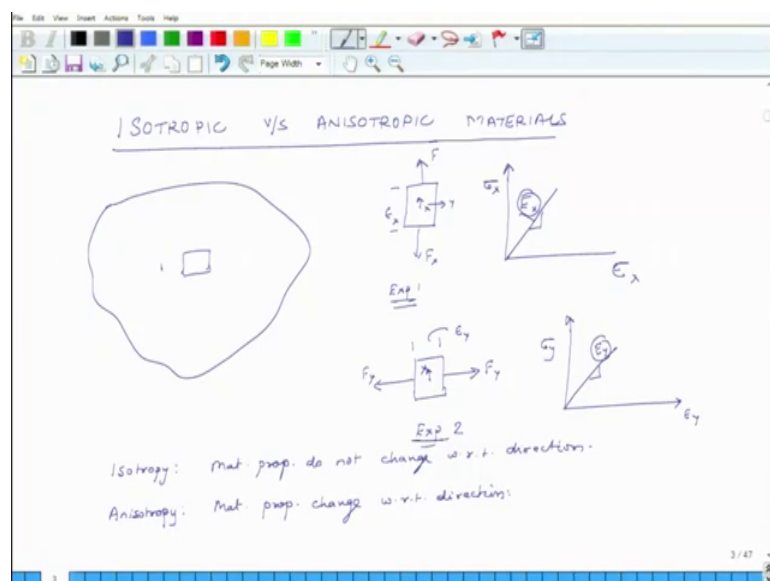 File Edit View Insert Actions Tools Help
B I
Page Width
ISOTROPIC V/S ANISOTROPIC MATERIALS
F
x
y
ϵx
Fx
Exp 1
σx
Ex
ϵx
ϵy
Fy
Fy
x
Exp 2
σy
Ey
ϵy
Isotropy: Mat. prop. do not change w.r.t. direction.
Anisotropy: Mat. prop. change w.r.t. direction.
3 / 47
3